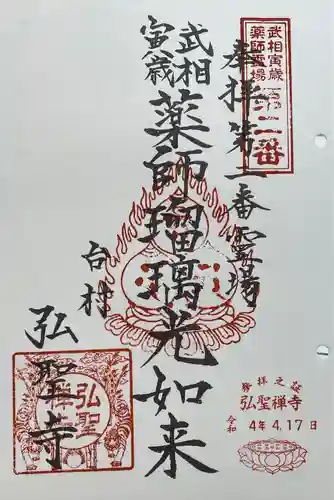 武相寅歳
薬師霊場
第二番
奉拝第二番霊場
武相
寅歳
薬師瑠璃光如来
台村
弘聖寺
弘聖
参拝之証
弘聖禅寺
令和 4年4.17日